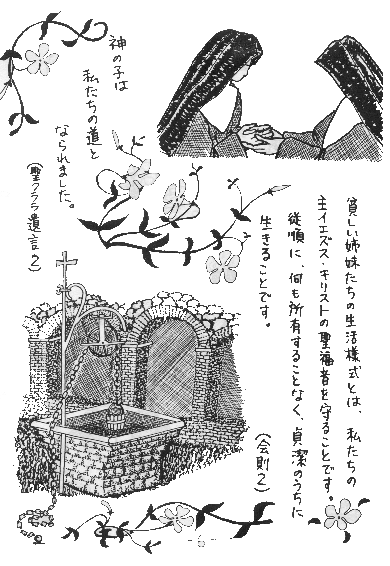 神の子は
私たちの道と
なられました。
(聖クララ遺言2)
貧しい姉妹たちの生活様式とは、私たちの
主イエズス・キリストの聖福音を守ることです。
従順に、何も所有することなく、貞潔のうちに
生きることです。
(会則2)
-6-